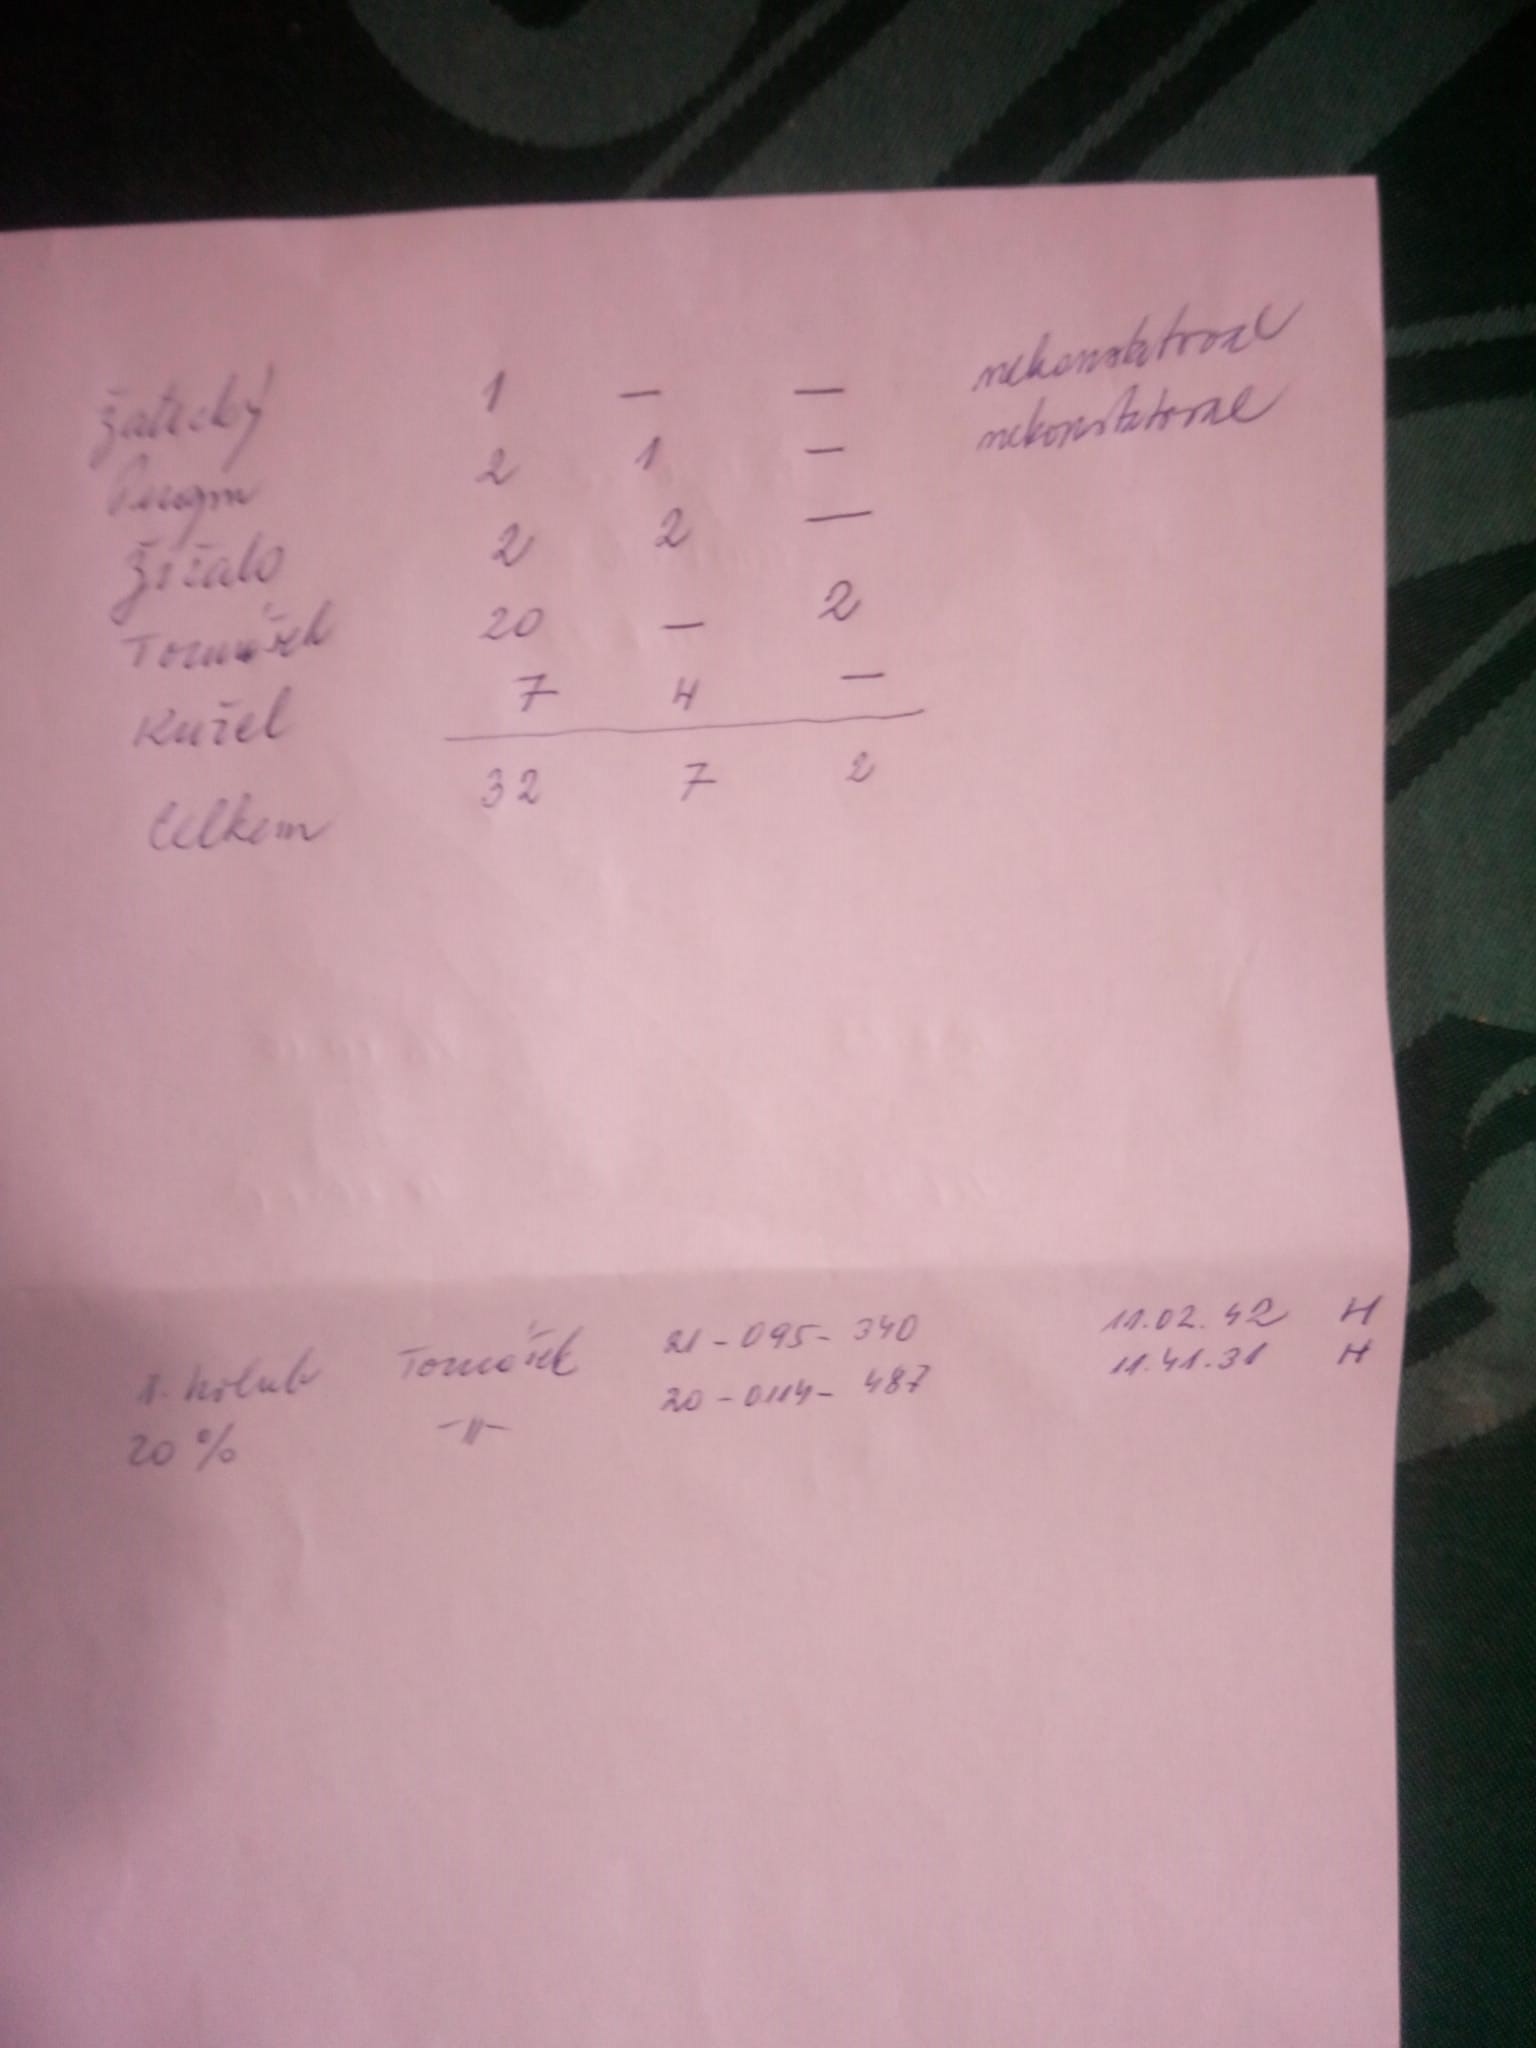 Žatecký 1 — — nekonstatoval
2 1 — nekonstatoval
Žížala 2 2 —
Tomášek 20 — 2
Kužel 7 4 —
Celkem 32 7 2
1. holub Tomášek 21-095-340 11.02.42 H
20% -"- 20-0114-487 11.41.31 H